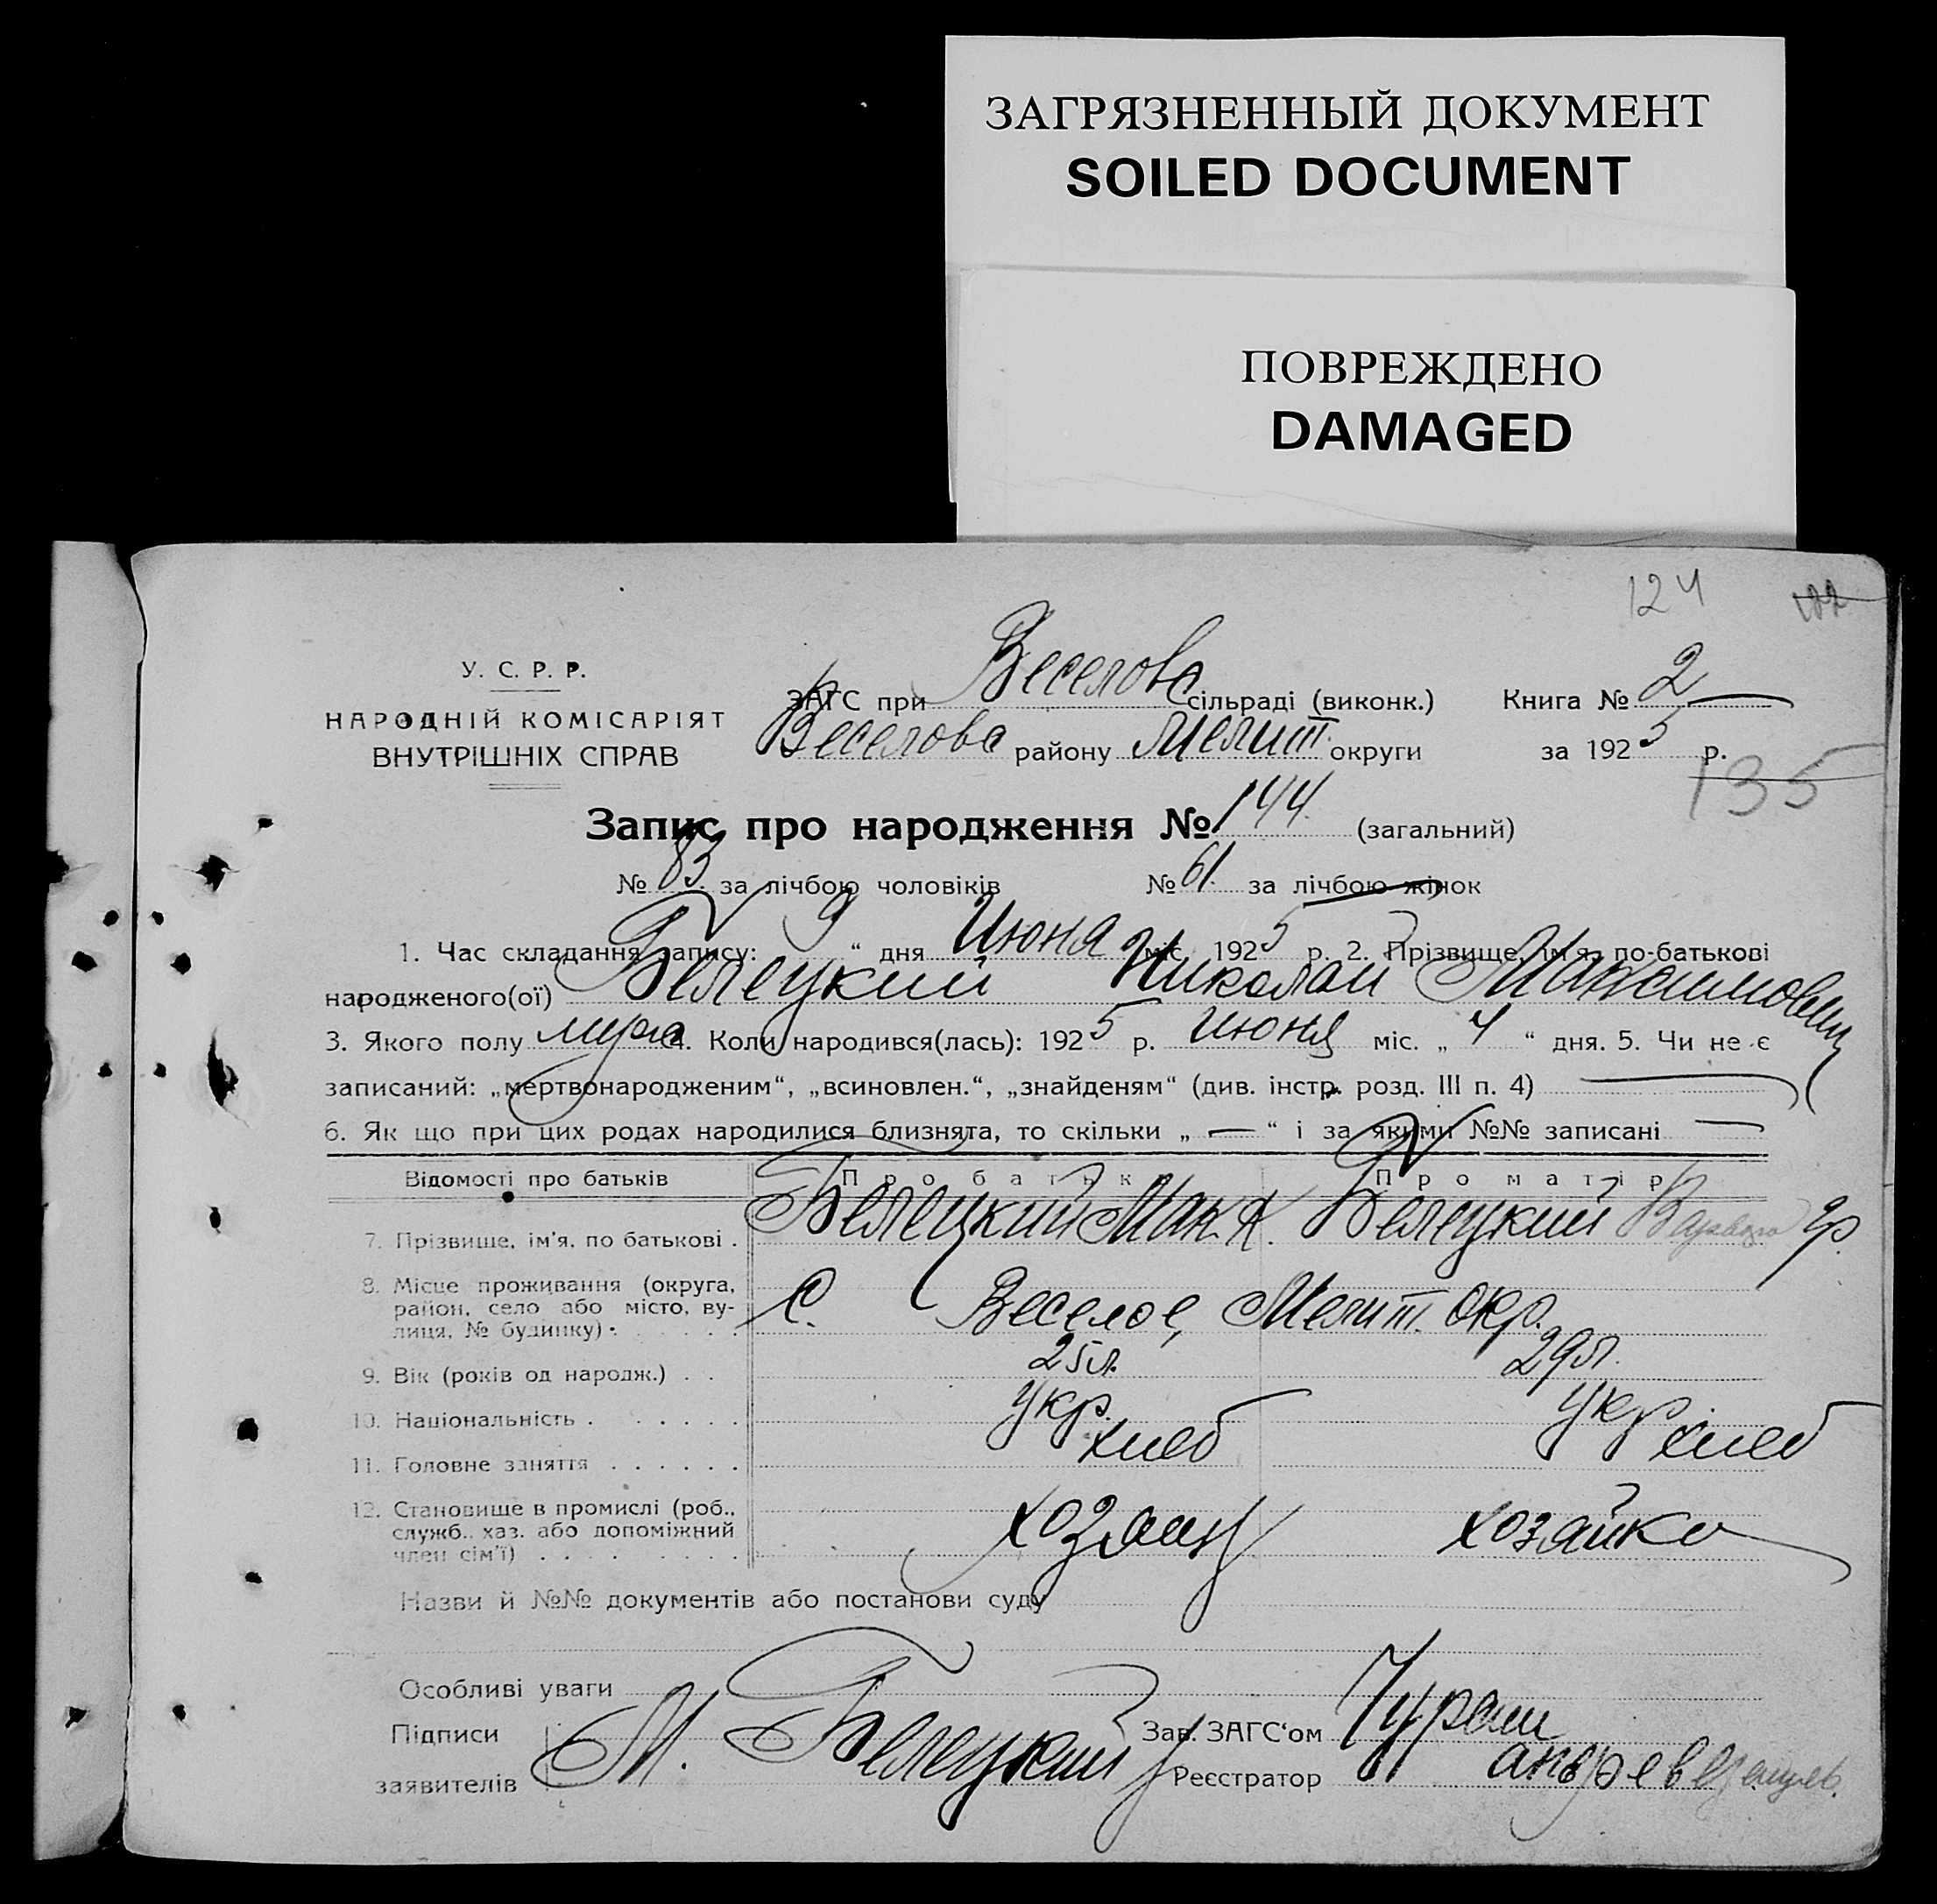 ЗАГРЯЗНЕННЫЙ ДОКУМЕНТ
SOILED DOCUMENT
ПОВРЕЖДЕНО
DAMAGED
124
У. С. Р. Р.
НАРОДНІЙ КОМІСАРІЯТ
ВНУТРІШНІХ СПРАВ
ЗАГС при Веселовс сільраді (виконк.) Книга № 2
Веселовс району Мелит. округи за 1925 р.
135
Запис про народження № 144. (загальний)
№ 83. за лічбою чоловіків № 61. за лічбою жінок
1. Час складання запису: 9 “ дня Июня міс. 1925 р. 2. Прізвище, ім'я, по-батькові
народженого(ої) Белецкий Николай Максимович
3. Якого полу муж 4. Коли народився(лась): 1925 р. июня міс. „ 4 “ дня. 5. Чи не є
записаний: „мертвонародженим“, „всиновлен.“, „знайденям“ (див. інстр. розд. III п. 4) —
6. Як що при цих родах народилися близнята, то скільки „ — “ і за якими №№ записані —
Відомості про батьків Про батьк Про матір
7. Прізвище, ім'я, по батькові . Белецкий Мак. Белецкий гр.
8. Місце проживання (округа,
район, село або місто, ву-
лиця, № будинку) . . . . . . С. Веселое, Мелит. окр.
9. Вік (років од народж.) . . 25 л. 29 л.
10. Національність . . . . . . . Укр. Укр
11. Головне заняття . . . . . . хлеб хлеб
12. Становище в промислі (роб.,
служб., хаз. або допоміжний
член сім'ї) . . . . . . . . . хозяин хозяйка
Назви й №№ документів або постанови суду
Особливі уваги
Підписи
заявителів М. Белецкий
Зав. ЗАГС‘ом
Реєстратор